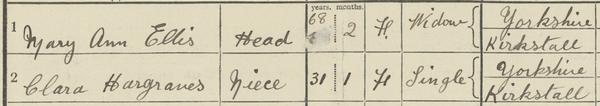 years. months.
1 Mary Ann Ellis Head 68 2 F. Widow Yorkshire
Kirkstall
2 Clara Hargraves Niece 31 1 F Single Yorkshire
Kirkstall